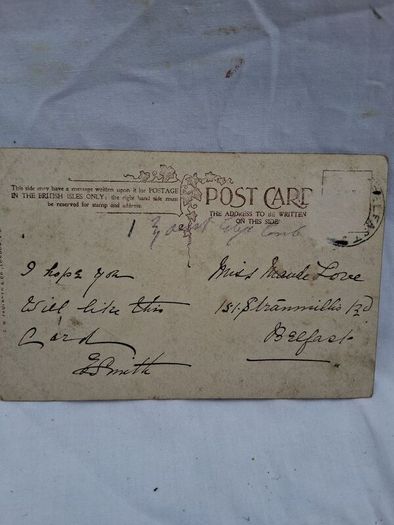 This side may have a message written upon it for POSTAGE
IN THE BRITISH ISLES ONLY; the right hand side must
be reserved for stamp and address.
POST CARD
THE ADDRESS TO BE WRITTEN
ON THIS SIDE
I hope you
Will like this
Card
E Smith
Miss Maude Love
151 Stranmillis Rd
Belfast